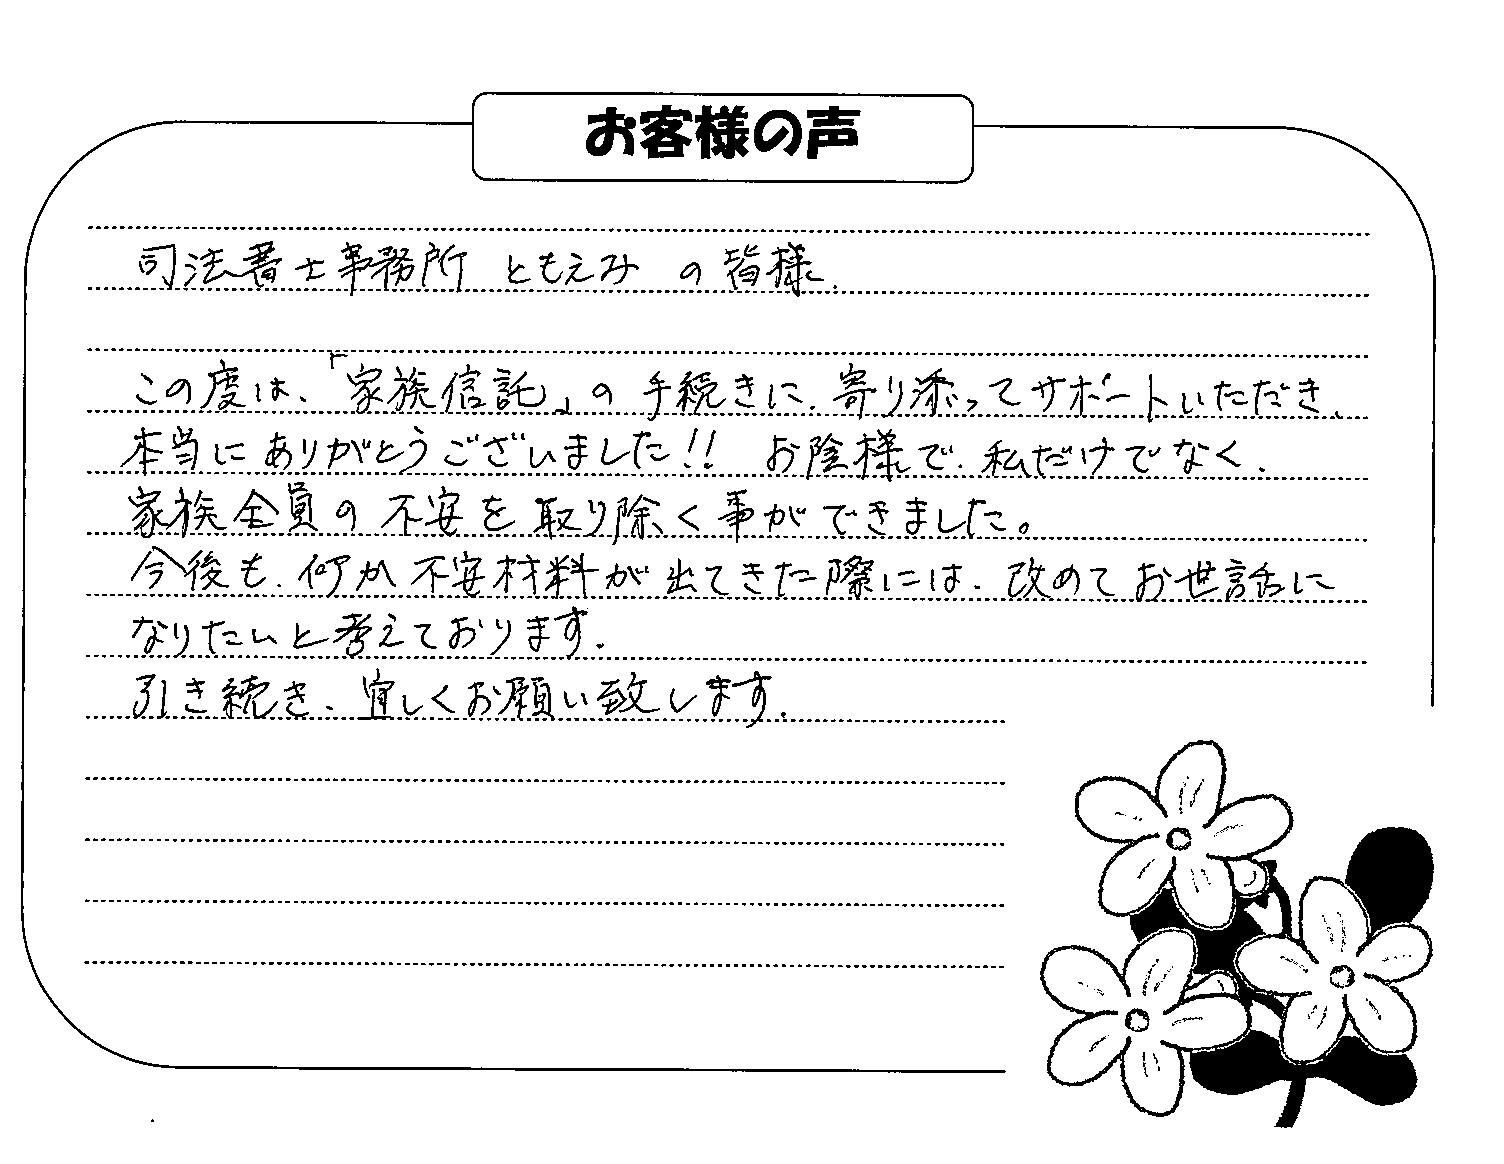 お客様の声
司法書士事務所 ともえみ の 皆様.
この度は、「家族信託」の 手続きに、寄り添ってサポートいただき、
本当にありがとうございました!! お陰様で、私だけでなく、
家族全員の 不安を 取り除く事ができました。
今後も、何か 不安材料が 出てきた際には、改めて お世話に
なりたいと考えております.
引き続き、宜しくお願い致します.